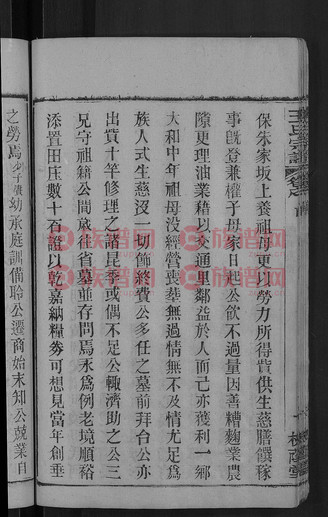 保朱家坂上養祖母更以勞力所得貲供生慈膳饌稼
事旣登兼權子母家日起公飲不過量因善糟麴業農
隙更理油業藉以交通里鄰益於人而己亦獲利一鄉
大和中年祖母没經營喪塟無過情無不及情尤足爲
族人式生慈没一切飾終費公多任之墓前拜台公亦
出貲十竿修理之諸昆季或偶不足公輒濟助之公三
兄守祖籍公間歲往省墓並存問焉永爲例老境順裕
添置田庄數十石證以乾嘉納糧券可想見當年創垂
之勞焉少子驥幼承庭訓備聆公遷商始末知公兢業自